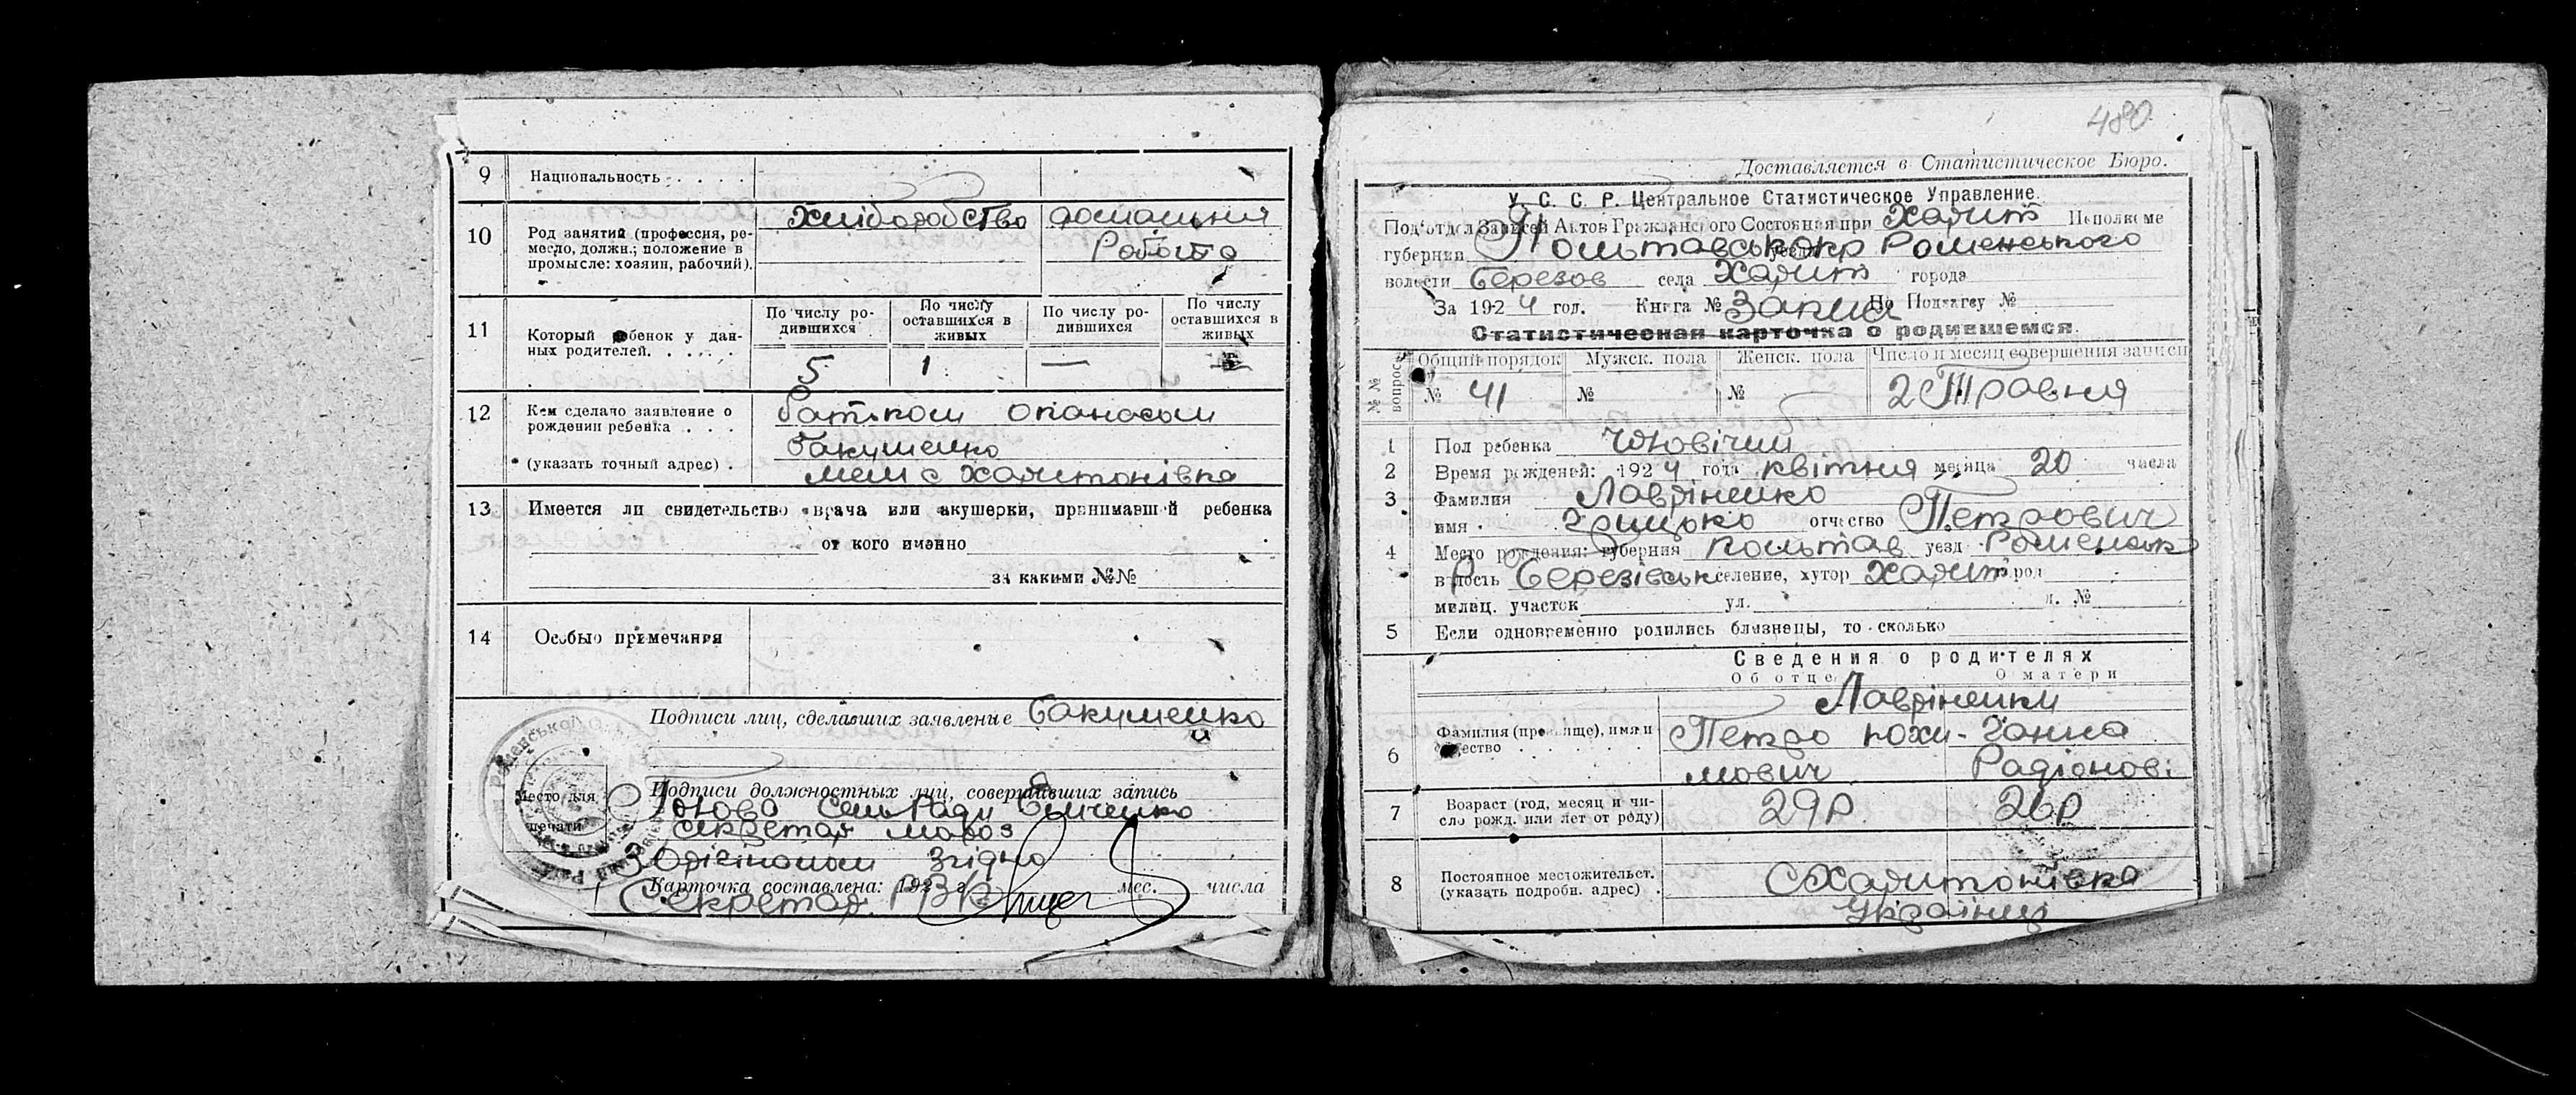 9 Национальность . . . . .
10 Род занятий (профессия, ре-
месло, должн.; положение в
промысле: хозяин, рабочий).
Хліборобство
домашня
Робота
11 Который ребенок у дан-
ных родителей. . . . . .
По числу ро-
дившихся
По числу
оставшихся в
живых
По числу ро-
дившихся
По числу
оставшихся в
живых
5 1 —
12 Кем сделано заявление о
рождении ребенка . . .
(указать точный адрес) .
Батьком Опанасом
Бакуменко
меш с Харитонівка
13 Имеется ли свидетельство врача или акушерки, принимавшей ребенка
от кого именно
за какими №№
14 Особые примечания
Подписи лиц, сделавших заявление Бакуменко
Место для
печати
Подписи должностных лиц, совершивших запись
Голова СельРади
Секретар Мороз
З Орігіналом Згідно
Карточка составлена: 192 г. мес. числа
Секретар РВК
480
Доставляется в Статистическое Бюро.
У. С. С. Р. Центральное Статистическое Управление.
Под'отдел Записей Актов Гражданского Состояния при Харит Исполкоме
губернии Полтавськ окр Роменського
волости Березов села Харит города
За 1924 год. Книга № Запис По Подлагсу №
Статистическая карточка о родившемся.
№№ вопрос.
Общий порядок Мужск. пола Женск. пола Число и месяц совершения записи
№ 41 № № 2 Травня
1 Пол ребенка Чоловічий
2 Время рождений: 1924 года квітня месяца 20 числа
3 Фамилия Лавріненко
имя Грицько отчество Петрович
4 Место рождения: губерния Полтав уезд Роменськ
волость Березівськ селение, хутор Харит город
милиц. участок ул. д. №
5 Если одновременно родились близнецы, то сколько
Сведения о родителях
Об отце О матери
6 Фамилия (прозвище), имя и
отчество . . . . . .
Лавріненки
Петро Пахи- Ганна
мович Радіонові
7 Возраст (год, месяц и чи-
сло рожд. или лет от роду)
29р. 26р
8 Постоянное местожительст.
(указать подробн. адрес) .
С Харитонівка
Українці